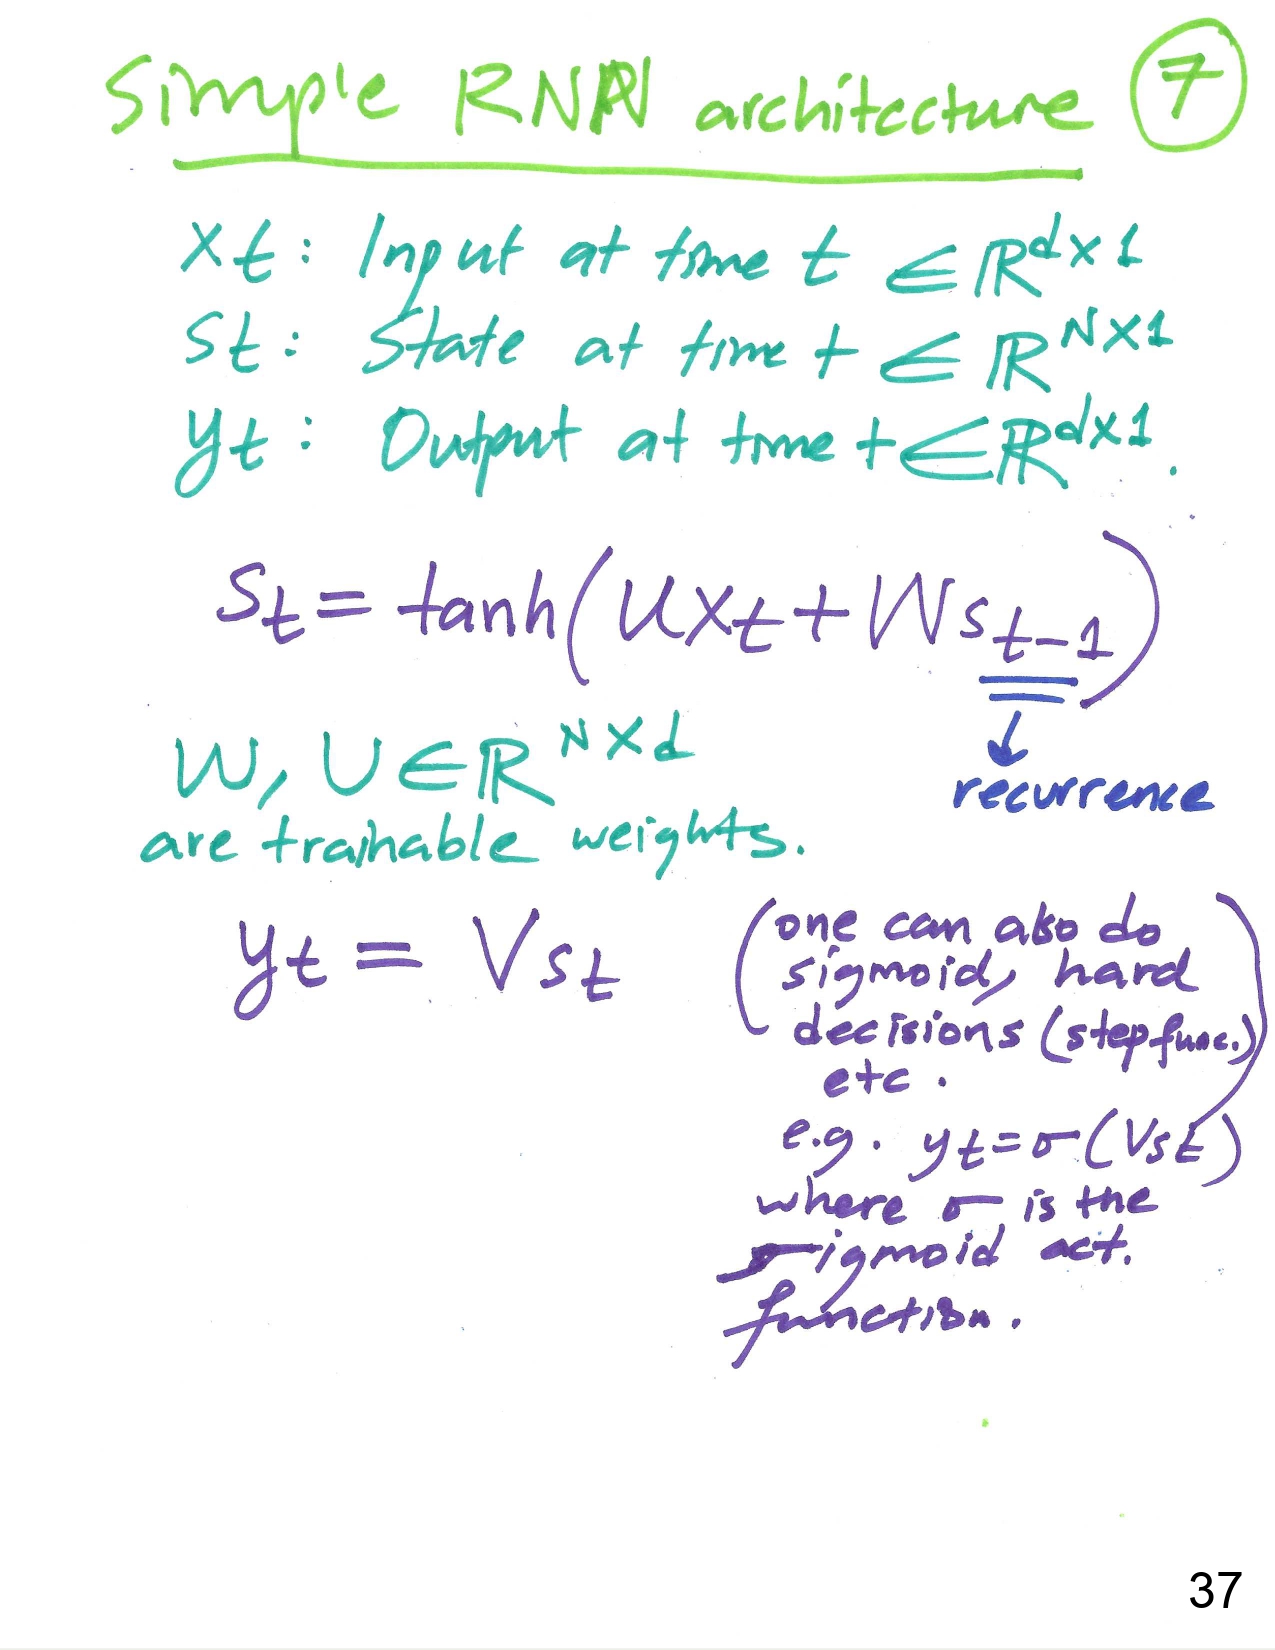 Simple RNN architecture 7
xt: Input at time t ∈ ℝ^{d×1}
st: State at time t ∈ ℝ^{N×1}
yt: Output at time t ∈ ℝ^{d×1}.
s_t = tanh(Ux_t + Ws_{t-1})
W, U ∈ ℝ^{N×d}
recurrence
are trainable weights.
y_t = Vs_t
(one can also do
sigmoid, hard
decisions (step func.)
etc.)
e.g. y_t = σ(Vs_t)
where σ is the
sigmoid act.
function.
37